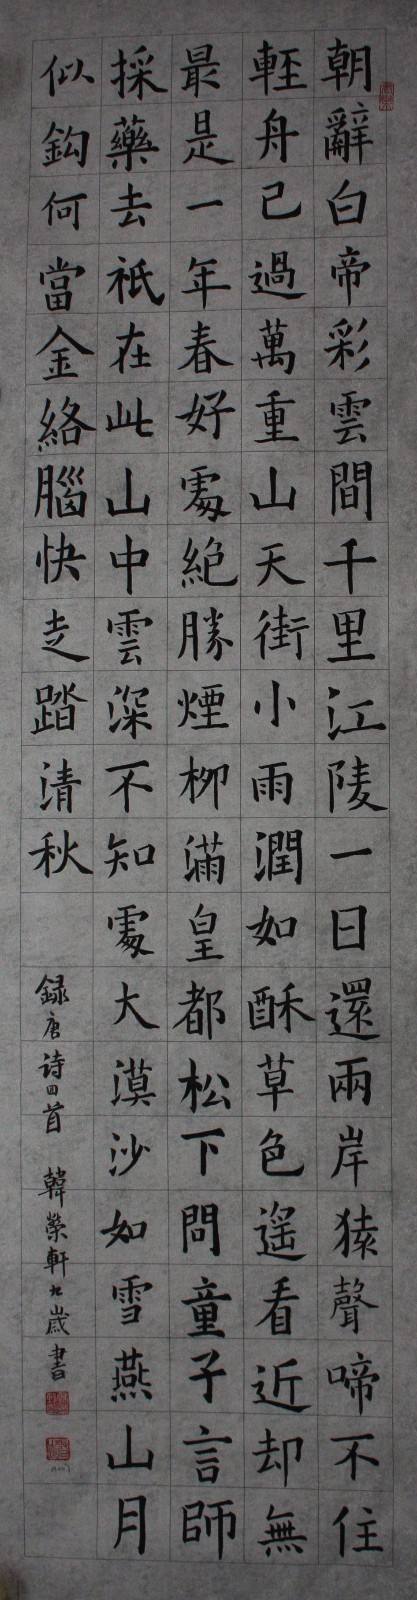 朝辭白帝彩雲間千里江陵一日還兩岸猿聲啼不住
輕舟己過萬重山天街小雨潤如酥草色遥看近却無
最是一年春好處絶勝煙柳滿皇都松下問童子言師
採藥去祇在此山中雲深不知處大漠沙如雪燕山月
似鈎何當金絡腦快走踏清秋
録唐诗四首 韓榮軒九歲書